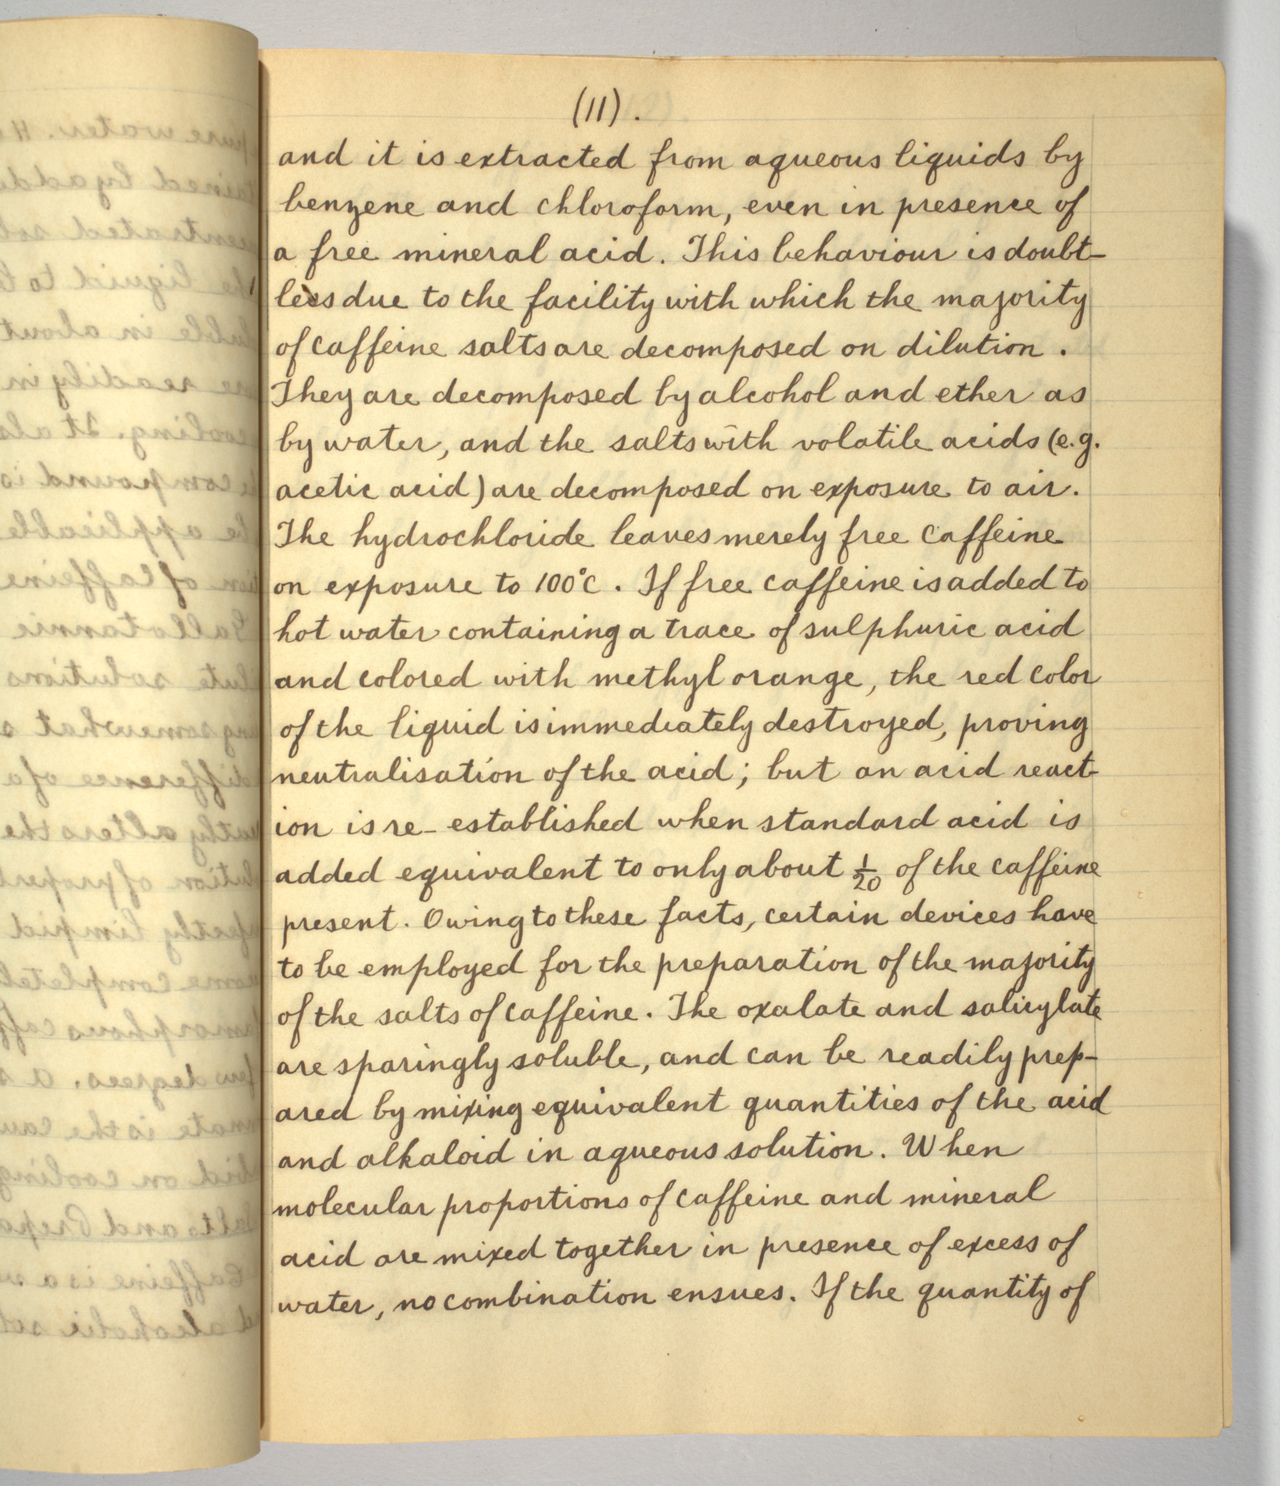 (11).
and it is extracted from aqueous liquids by
benzene and chloroform, even in presence of
a free mineral acid. This behaviour is doubt-
less due to the facility with which the majority
of caffeine salts are decomposed on dilution.
They are decomposed by alcohol and ether as
by water, and the salts with volatile acids (e.g.
acetic acid) are decomposed on exposure to air.
The hydrochloride leaves merely free caffeine
on exposure to 100°C. If free caffeine is added to
hot water containing a trace of sulphuric acid
and colored with methyl orange, the red color
of the liquid is immediately destroyed, proving
neutralisation of the acid; but an acid react-
ion is re-established when standard acid is
added equivalent to only about 1/20 of the caffeine
present. Owing to these facts, certain devices have
to be employed for the preparation of the majority
of the salts of caffeine. The oxalate and salicylate
are sparingly soluble, and can be readily prep-
ared by mixing equivalent quantities of the acid
and alkaloid in aqueous solution. When
molecular proportions of caffeine and mineral
acid are mixed together in presence of excess of
water, no combination ensues. If the quantity of